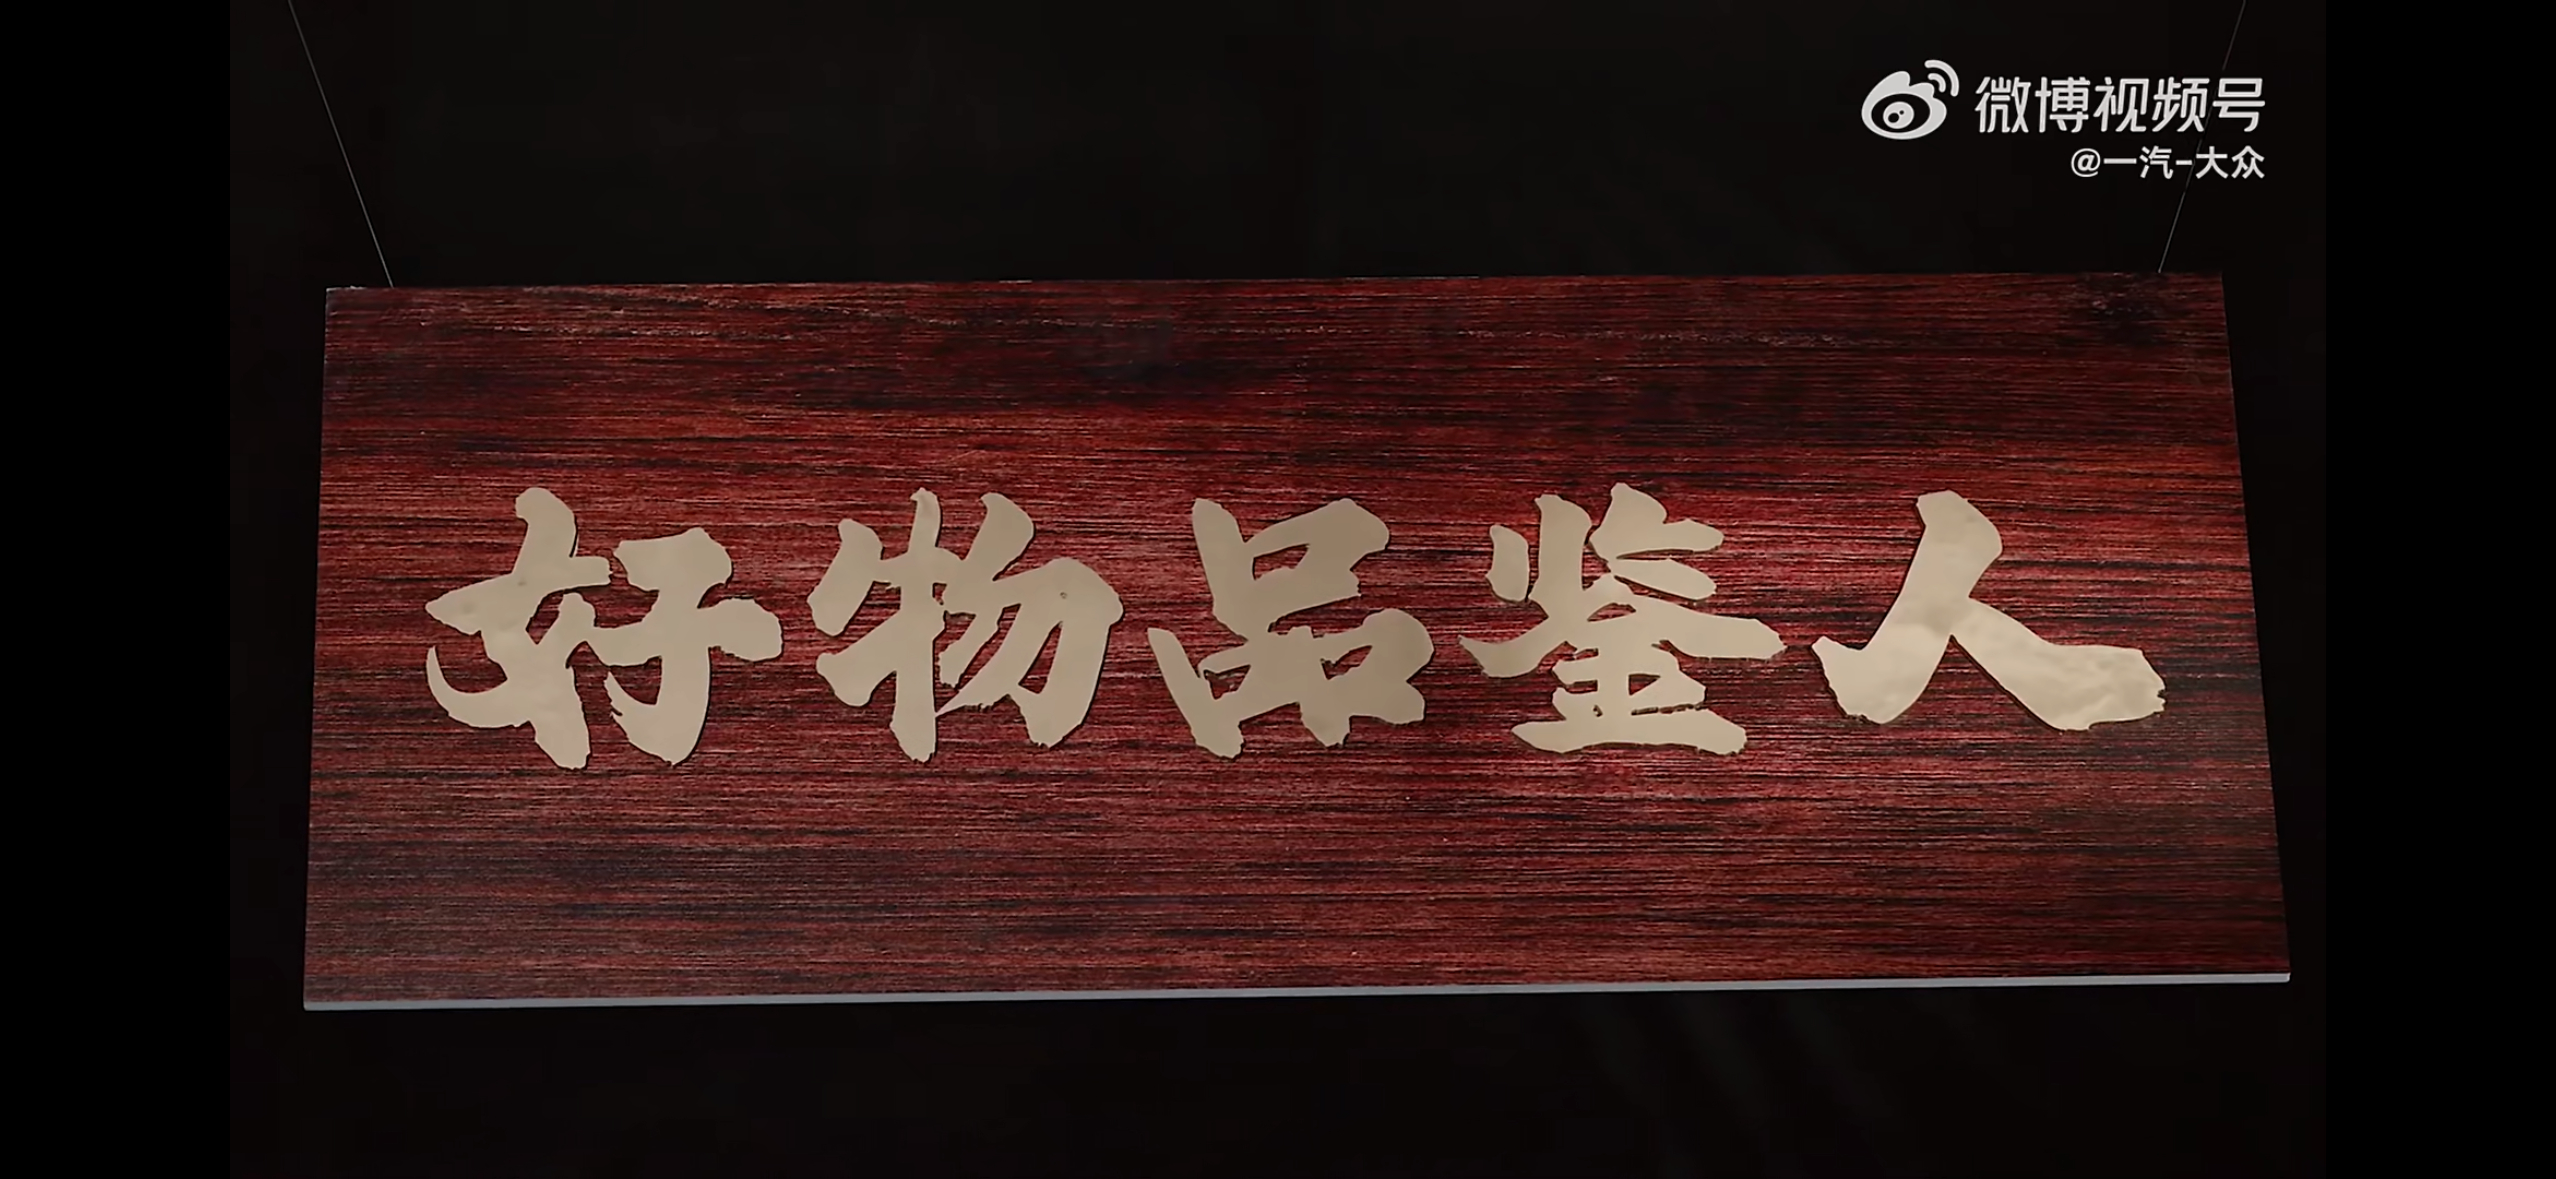 微博视频号
@一汽-大众
好物品鉴人